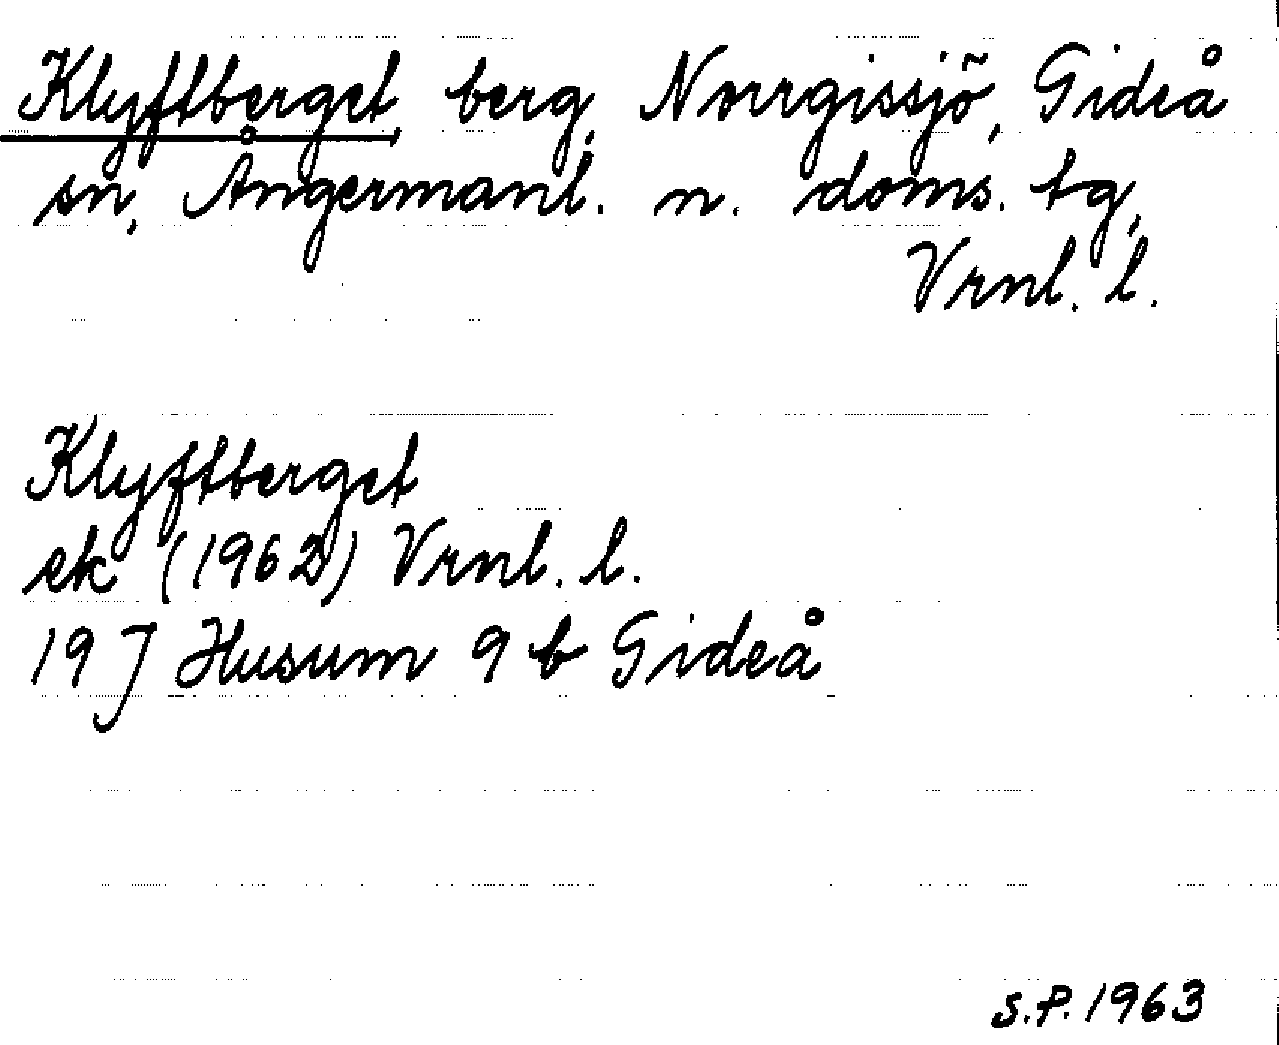 Klyftberget, berg, Norrgissjö, Gideå
sn, Ångermanl. n. doms. tg,
Vrnl. l.
Klyftberget
ek (1962) Vrnl. l.
19 J Husum 9 b Gideå
S.P. 1963